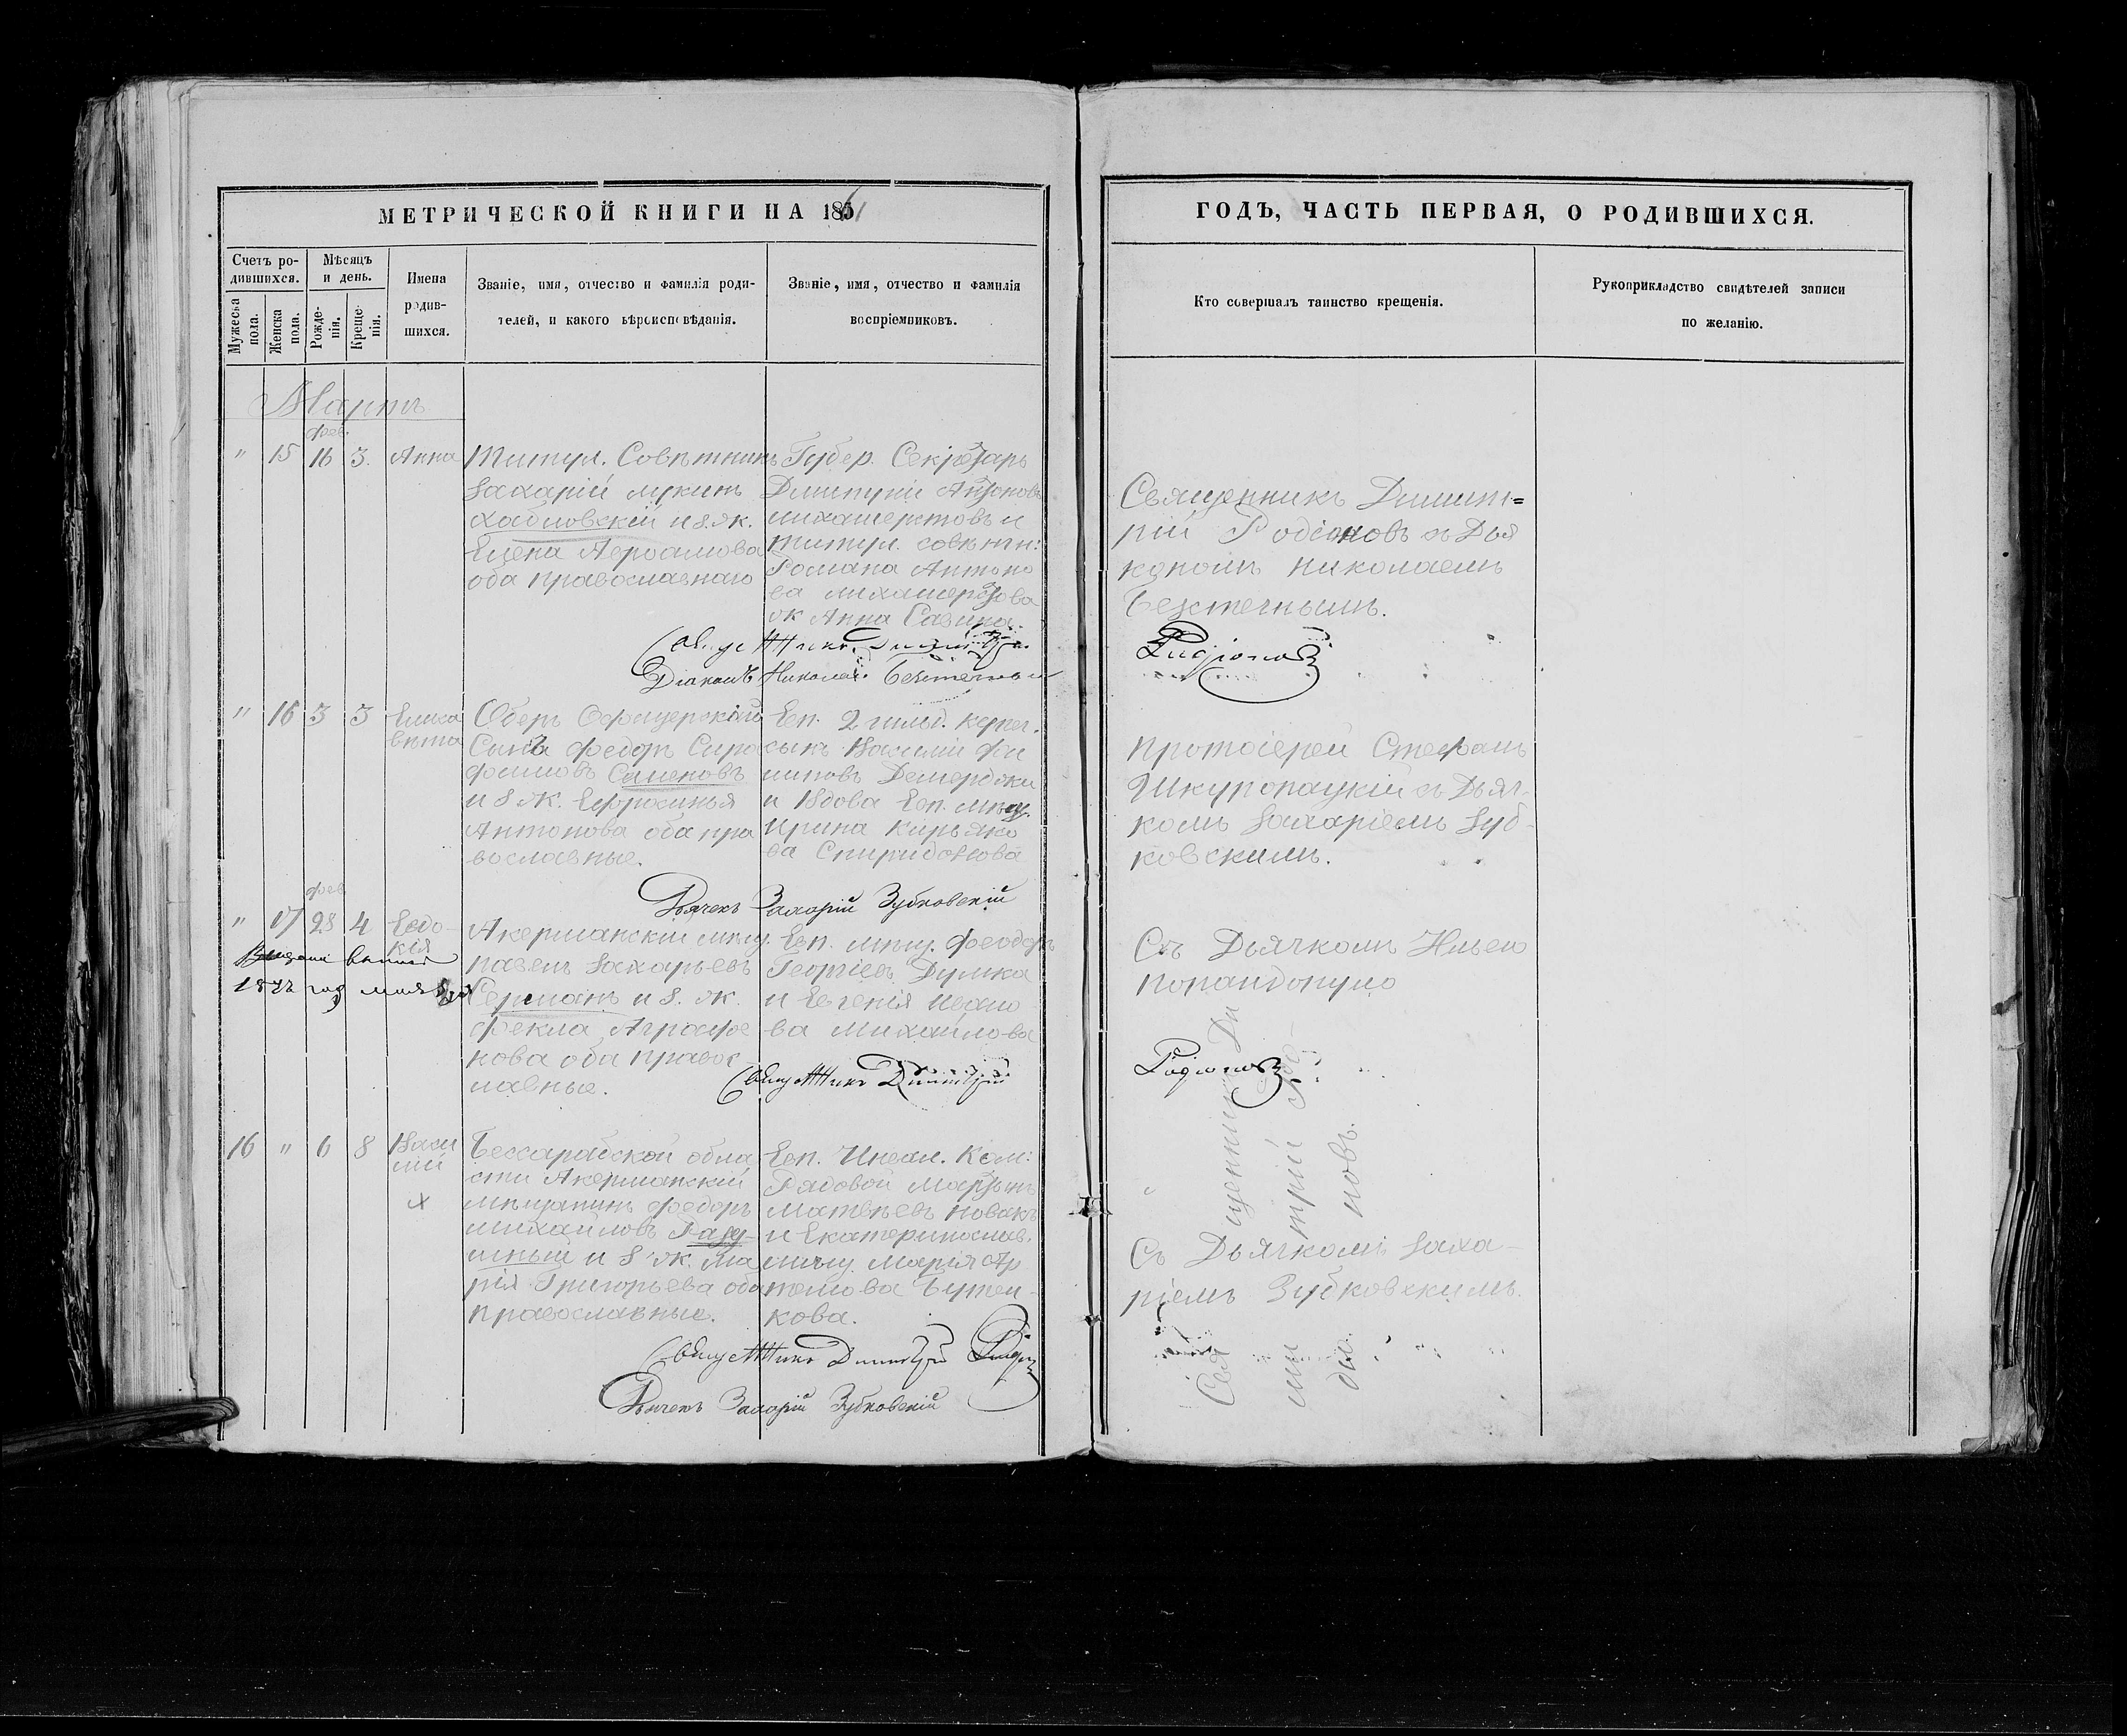 МЕТРИЧЕСКОЙ КНИГИ НА 1861
ГОДЪ, ЧАСТЬ ПЕРВАЯ, О РОДИВШИХСЯ.
Счетъ ро-
дившихся.
Мужеска
пола.
Женска
пола.
Мѣсяцъ
и день.
Рожде-
нія.
Креще-
нія.
Имена
родив-
шихся.
Званіе, имя, отчество и фамилія роди-
телей, и какого вѣроисповѣданія.
Званіе, имя, отчество и фамилія
воспріемниковъ.
Кто совершалъ таинство крещенія.
Рукоприкладство свидѣтелей записи
по желанію.
Мартъ
фев.
" 15 16 3. Анна
Титул. Совѣтникъ
Захарій
и з. ж.
Елена
оба православнаго
Губер. Секретарь
Дмитрій Антоновъ
и
титул. совѣтн:
Романа Антоно
ва
ж Анна Савина.
Священникъ Димит=
рій Родіоновъ съ Дья
кономъ Николаемъ
Бехтечнымъ.
Священникъ Димитрій
Родіоновъ
Діаконъ Николай
" 16 3 3 Елиса
вета
Оберъ Офицерскій
Сынъ Федоръ Сера
фимовъ Саненовъ
и з ж. Ефросинья
Антонова оба пра
вославные.
Евп. 2 гильд. купеч.
сынъ Василій Фи
липовъ Демерджи
и Вдова Евп. мѣщ.
Ирина Кирьяко
ва Спиридонова
Протоіерей Стефанъ
Шкуропацкій съ Дьяч-
комъ Захаріемъ Зуб-
ковскимъ.
Дьячекъ Захарій Зубковскій
фев
" 17 28 4 Евдо-
кія
1872 год
Акерманскій мѣщ.
Павелъ Захарьевъ
и з. ж.
Фекла Аграфе
нова оба правос
лавные.
Евп. мѣщ. Феодоръ
Георгіевъ Думка
и Евгенія Ивано
ва Михайлова
Съ Дьячкомъ Ильею
Попандопуло
Священникъ Димитрій
Родіоновъ
16 " 6 8 Васи
лій
х
Бессарабской обла
сти Акерманскій
мѣщанинъ Федоръ
Михайловъ
и з ж. Ма
рія Григорьева оба
православные.
Евп. Инвал. Ком:
Рядовой Мартынъ
Матвѣевъ Новакъ
и Екатеринослав.
мѣщ. Марія Ар
темова
кова.
Съ Дьячкомъ Заха-
ріемъ Зубковскимъ.
Священникъ Ди
митрій Ро
діоновъ.
Священникъ Димитрій Родіоновъ
Дьячекъ Захарій Зубковскій